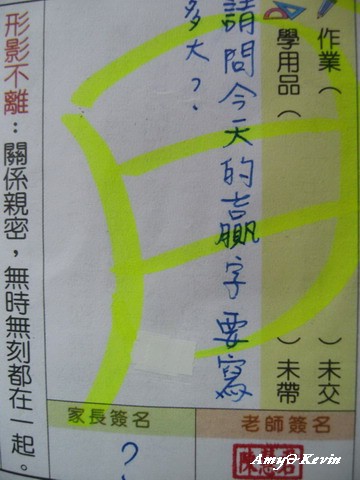 作業（　　）未交
學用品（　　）未帶
請問今天的贏字要寫
多大？
形影不離：關係親密，無時無刻都在一起。
家長簽名
老師簽名
？
Amy&Kevin